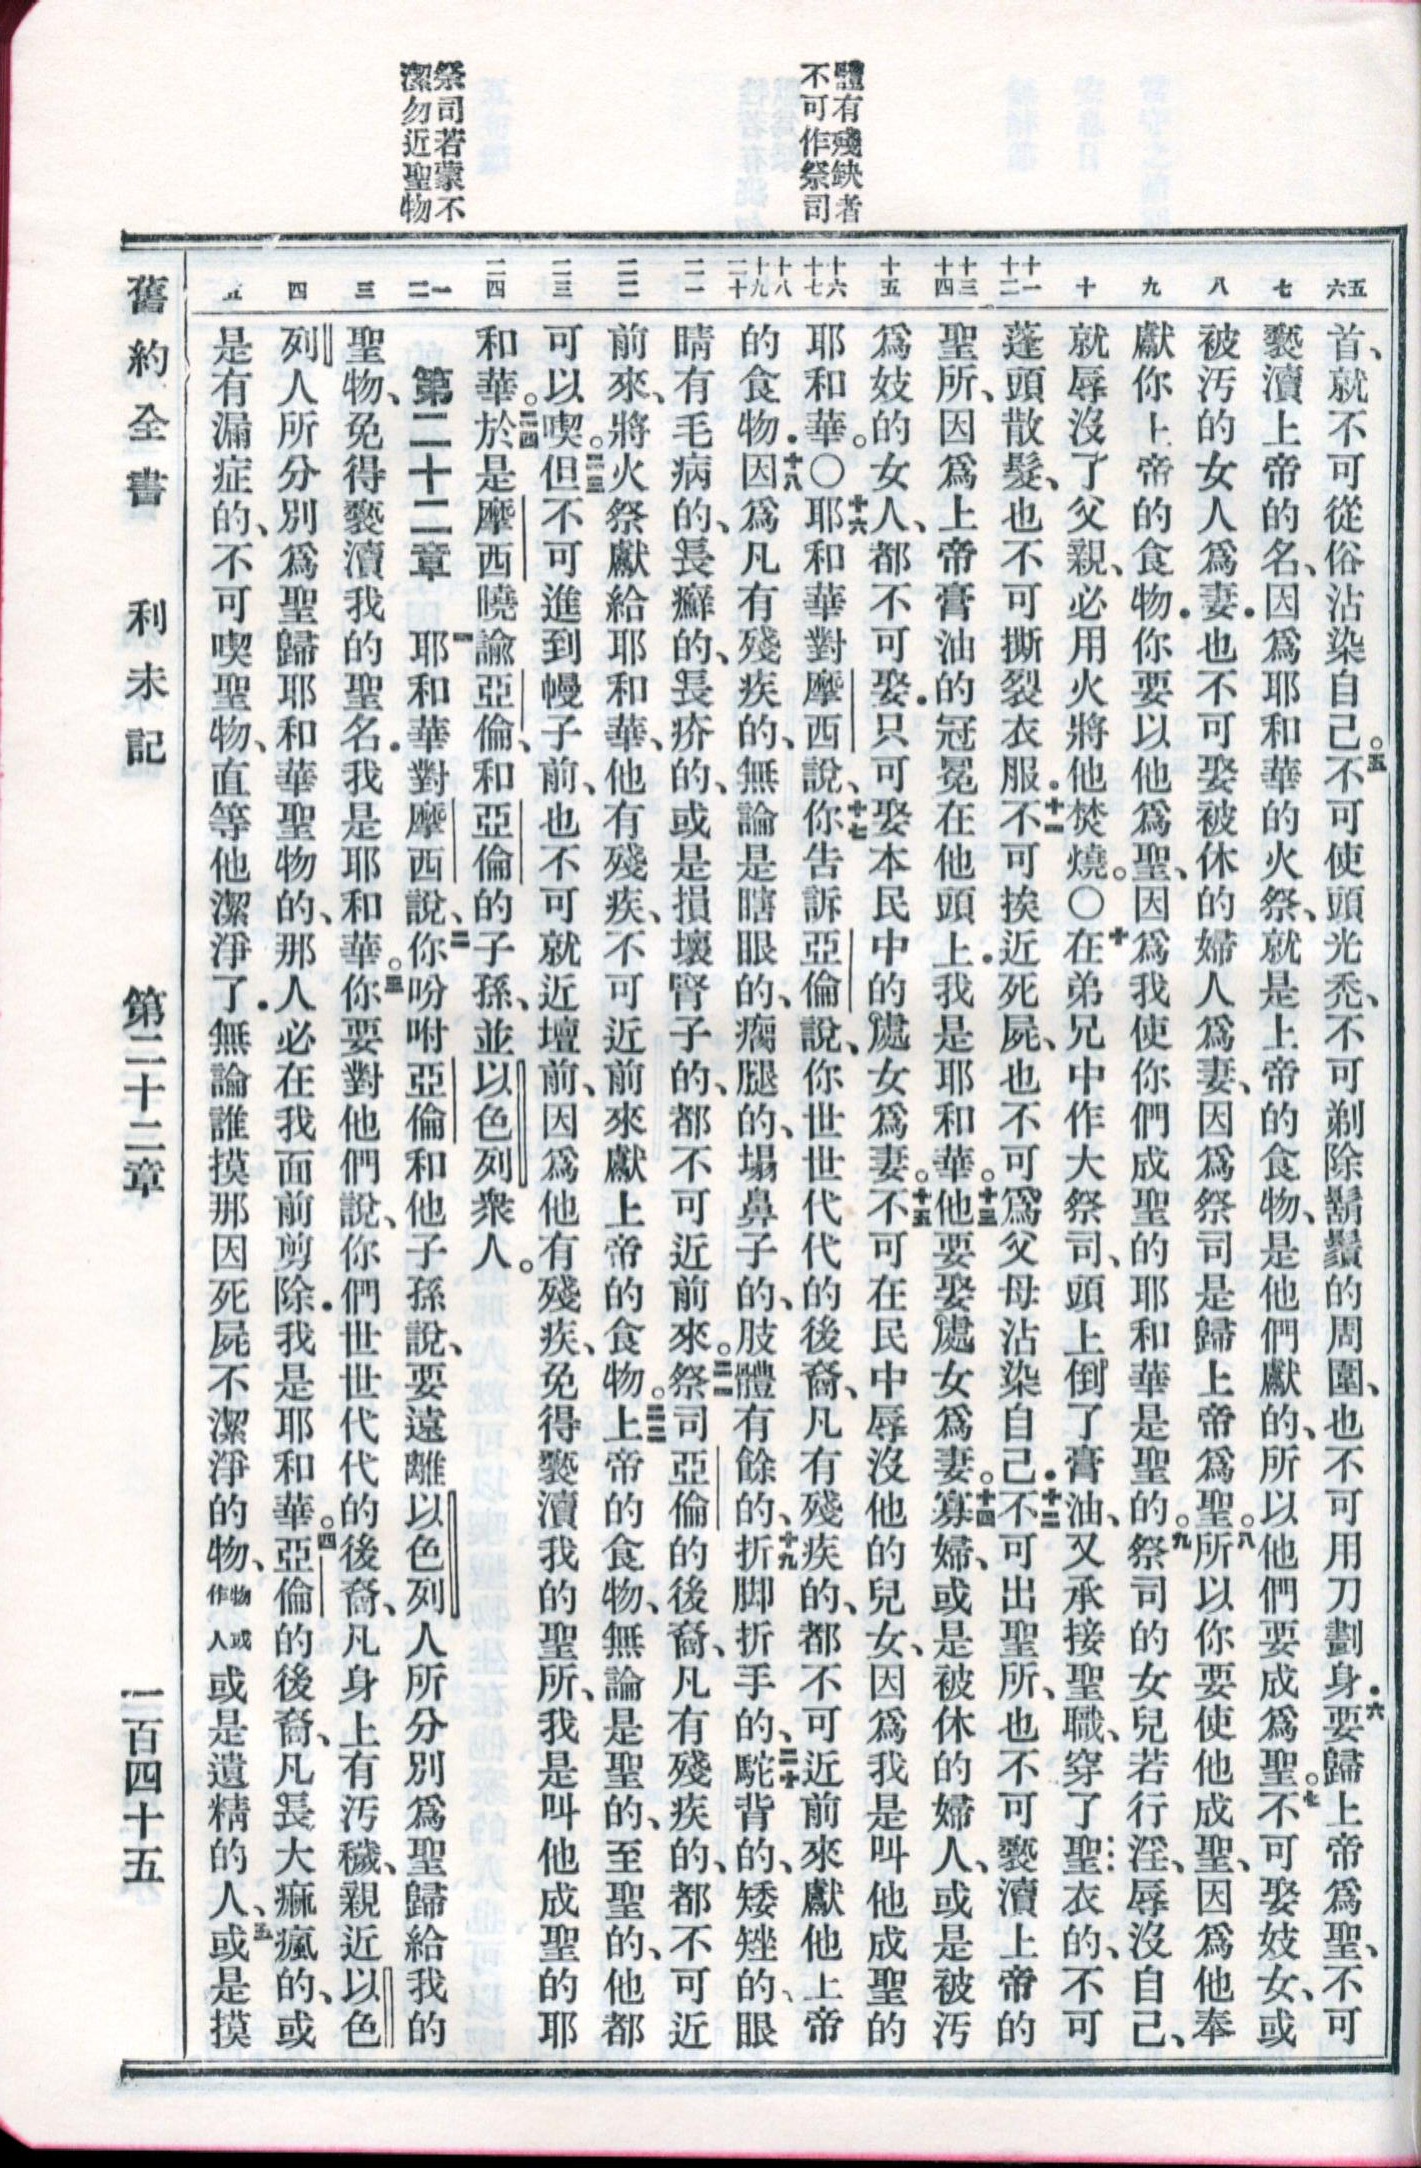 體有殘缺者
不可作祭司
祭司若蒙不
潔勿近聖物
五
六
七
八
九
十
十一
十二
十三
十四
十五
十六
十七
十八
十九
二十
二一
二二
二三
二四
一
二
三
四
五
首、就不可從俗沾染自己。五不可使頭光禿、不可剃除鬍鬚的周圍、也不可用刀劃身.六要歸上帝爲聖、不可
褻瀆上帝的名、因爲耶和華的火祭、就是上帝的食物、是他們獻的、所以他們要成爲聖。七不可娶妓女、或
被汚的女人爲妻.也不可娶被休的婦人爲妻、因爲祭司是歸上帝爲聖。八所以你要使他成聖、因爲他奉
獻你上帝的食物.你要以他爲聖、因爲我使你們成聖的耶和華是聖的。九祭司的女兒若行淫、辱沒自己、
就辱沒了父親、必用火將他焚燒。〇十在弟兄中作大祭司、頭上倒了膏油、又承接聖職、穿了聖衣的、不可
蓬頭散髮、也不可撕裂衣服.十一不可挨近死屍、也不可爲父母沾染自己.十二不可出聖所、也不可褻瀆上帝的
聖所、因爲上帝膏油的冠冕在他頭上.我是耶和華。十三他要娶處女爲妻。十四寡婦、或是被休的婦人、或是被汚
爲妓的女人、都不可娶.只可娶本民中的處女爲妻。十五不可在民中辱沒他的兒女、因爲我是叫他成聖的
耶和華。〇十六耶和華對摩西說、十七你告訴亞倫說、你世世代代的後裔、凡有殘疾的、都不可近前來獻他上帝
的食物.十八因爲凡有殘疾的、無論是瞎眼的、瘸腿的、塌鼻子的、肢體有餘的、十九折脚折手的、二十駝背的、矮矬的、眼
睛有毛病的、長癬的、長疥的、或是損壞腎子的、都不可近前來。二一祭司亞倫的後裔、凡有殘疾的、都不可近
前來、將火祭獻給耶和華、他有殘疾、不可近前來獻上帝的食物。二二上帝的食物、無論是聖的、至聖的、他都
可以喫。二三但不可進到幔子前、也不可就近壇前、因爲他有殘疾、免得褻瀆我的聖所、我是叫他成聖的耶
和華。二四於是摩西曉諭亞倫、和亞倫的子孫、並以色列衆人。
第二十二章 一耶和華對摩西說、二你吩咐亞倫和他子孫說、要遠離以色列人所分別爲聖歸給我的
聖物、免得褻瀆我的聖名.我是耶和華。三你要對他們說、你們世世代代的後裔、凡身上有汚穢、親近以色
列人所分別爲聖歸耶和華聖物的、那人必在我面前剪除.我是耶和華。四亞倫的後裔、凡長大痲瘋的、或
是有漏症的、不可喫聖物、直等他潔淨了.無論誰摸那因死屍不潔淨的物、物或作人或是遺精的人、五或是摸
舊約全書 利未記 第二十二章 一百四十五